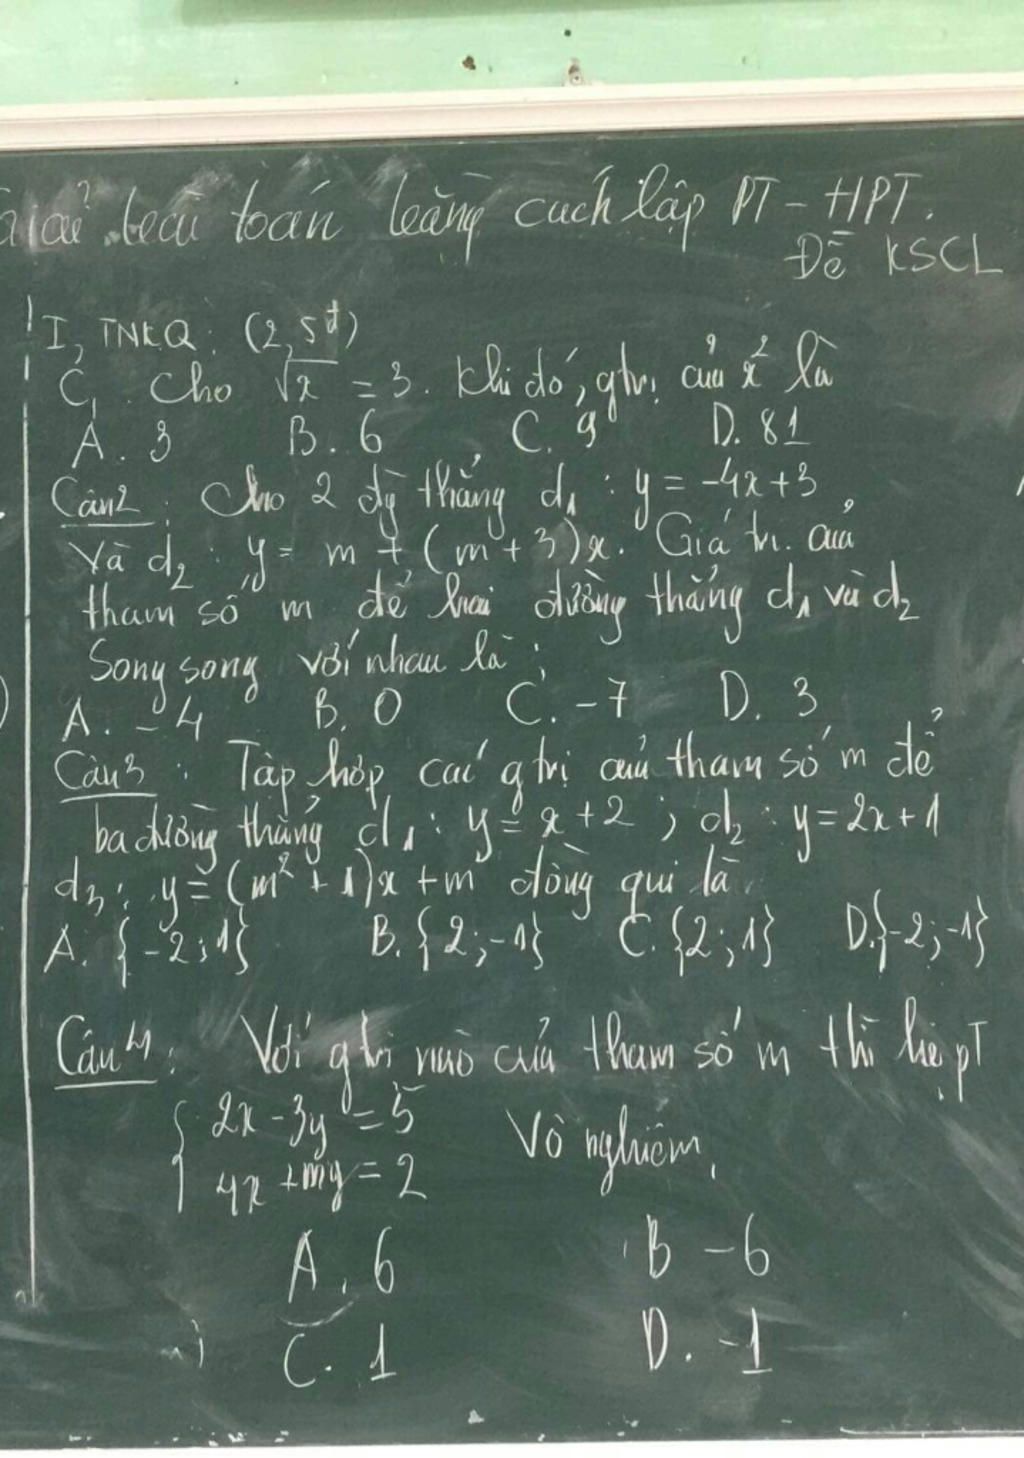 Giải bài toán bằng cách lập PT - HPT.
Đề KSCL
I, TNKQ: (2,5đ)
C1. Cho √x = 3. Khi đó, gtrị của x² là
A. 3 B. 6 C. 9 D. 81
Câu 2: Cho 2 đg thẳng d₁ : y = -4x+3
Và d₂ : y = m + (m+3)x. Giá trị của
tham số m để hai đường thẳng d₁ và d₂
Song song với nhau là :
A. -4 B. 0 C. -7 D. 3
Câu 3 : Tập hợp các gtrị của tham số m để
ba đường thẳng d₁: y = x+2 ; d₂ : y=2x+1
d₃: y = (m²+1)x +m đồng qui là
A. {-2;1} B. {2;-1} C. {2;1} D.{-2;-1}
Câu 4: Với gtrị nào của tham số m thì hệ pT
{ 2x - 3y = 5 Vô nghiệm,
4x + my = 2
A. 6 B -6
C. 1 D. -1